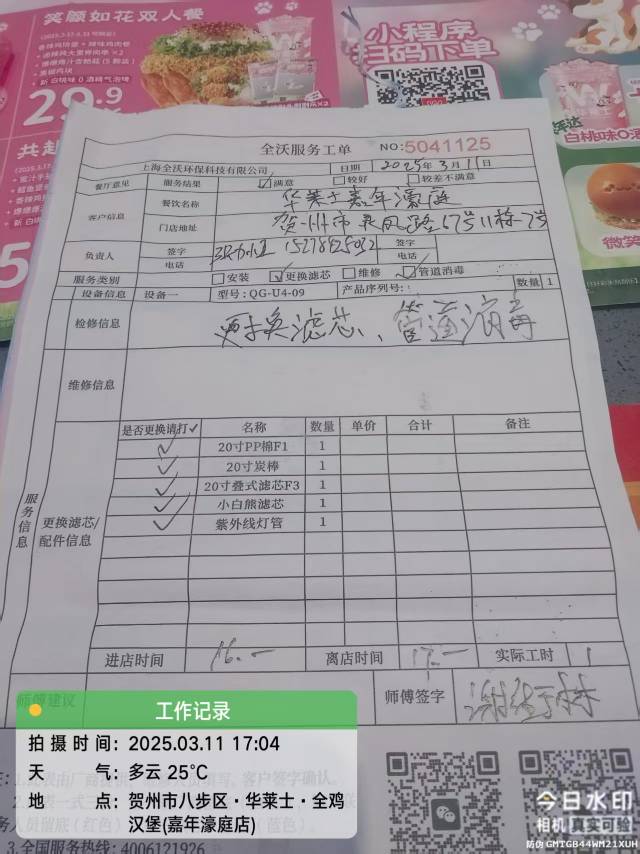 笑颜如花双人餐
29.9
小程序
扫码下单
共赴
白桃味0酒
微笑
全沃服务工单 NO:5041125
上海全沃环保科技有限公司 日期 2025年3月11日
餐厅意见 服务结果 ☑满意 □较好 □较差不满意
客户信息 餐饮名称 华莱士嘉年濠庭
门店地址 贺州市灵凤路67号11栋-7号
负责人 签字 签字
电话 电话
服务类别 □安装 ☑更换滤芯 □维修 ☑管道消毒
设备信息 设备一 型号: QG-U4-09 产品序列号: 数量 1
检修信息 更换滤芯、管道消毒
维修信息
服务信息
更换滤芯/配件信息
是否更换请打✓ 名称 数量 单价 合计 备注
✓ 20寸PP棉F1 1
✓ 20寸炭棒 1
✓ 20寸叠式滤芯F3 1
✓ 小白熊滤芯 1
✓ 紫外线灯管 1
进店时间 16:- 离店时间 17:- 实际工时 1
师傅建议 师傅签字
工作记录
拍摄时间: 2025.03.11 17:04
天气: 多云 25°C
地点: 贺州市八步区·华莱士·全鸡
汉堡(嘉年濠庭店)
3.全国服务热线: 4006121926
今日水印
相机 真实可验
防伪 GMTGB44WM21XUH